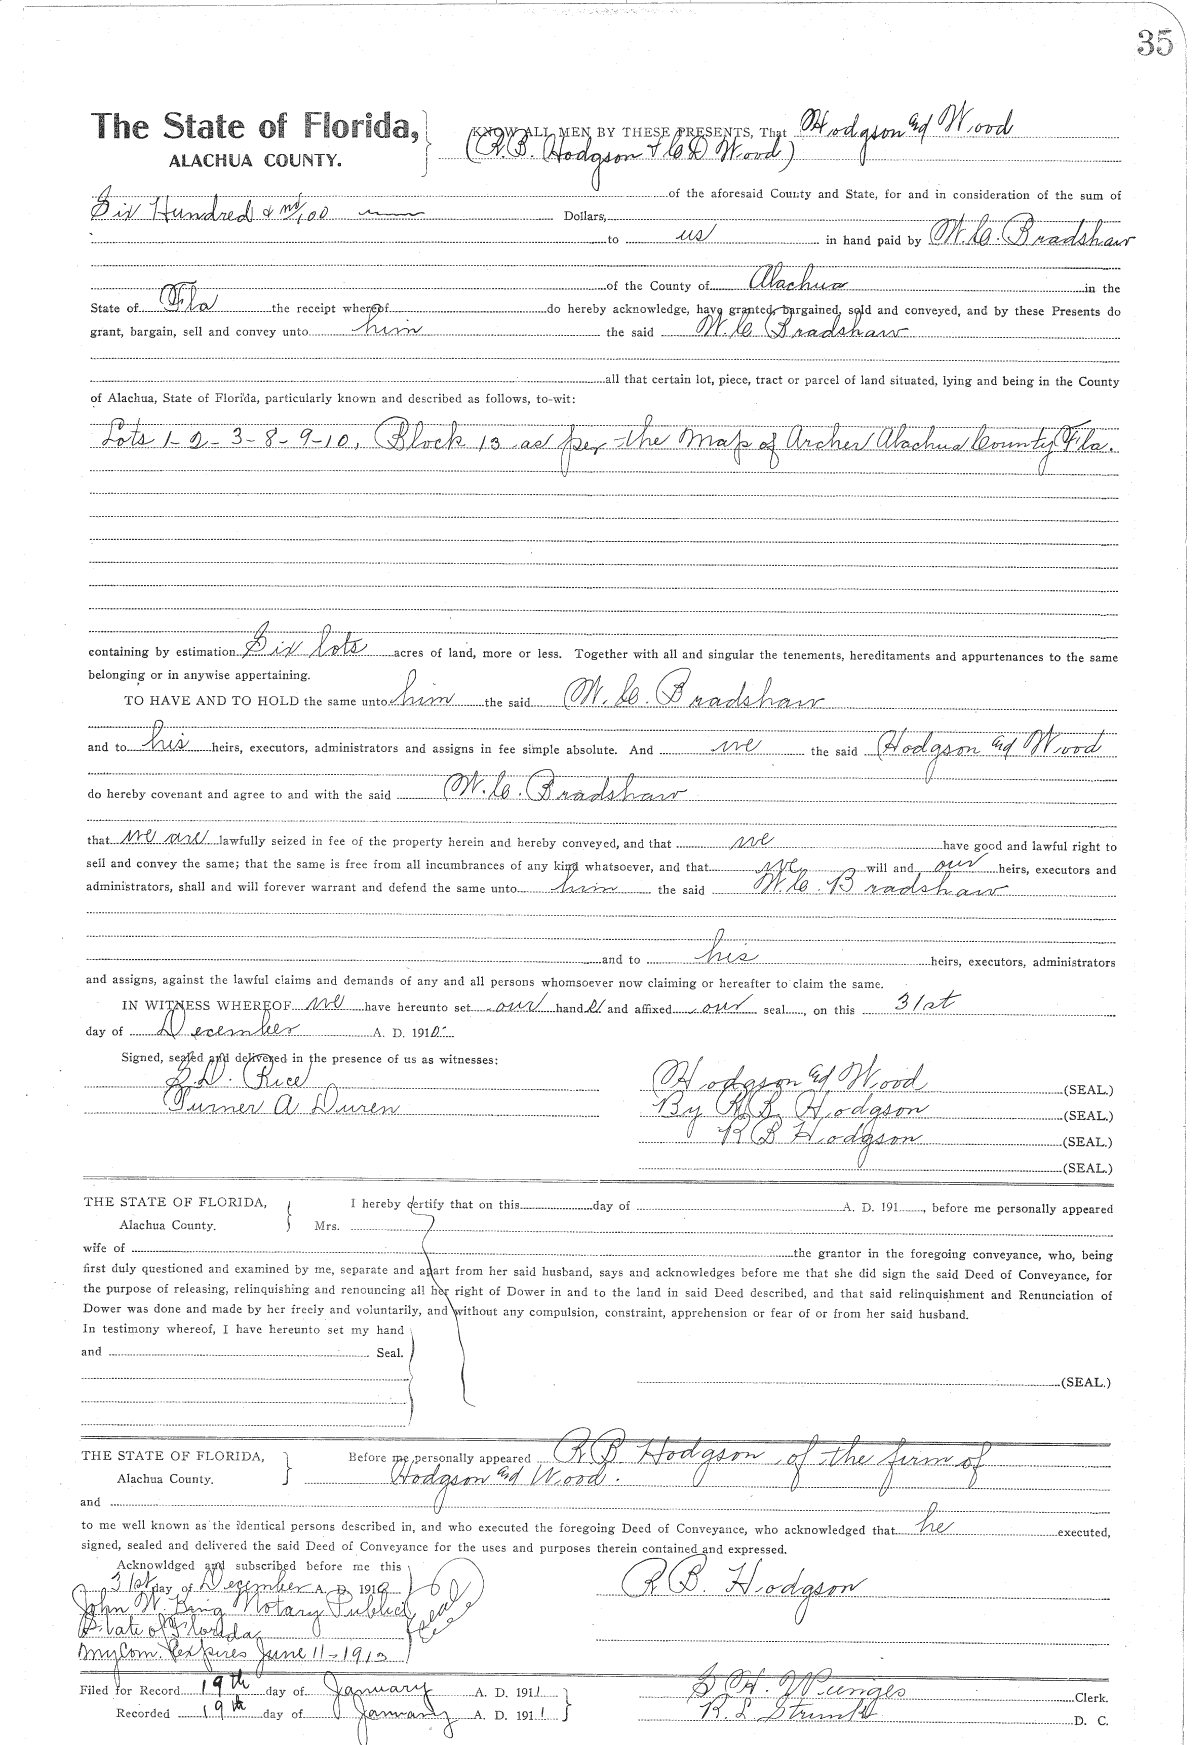 35
The State of Florida,
ALACHUA COUNTY.
KNOW ALL MEN BY THESE PRESENTS, That Hodgson and Wood
(R.B. Hodgson & C D Wood)
of the aforesaid County and State, for and in consideration of the sum of
Six Hundred & no/100 Dollars,
to us in hand paid by W. C. Bradshaw
of the County of Alachua in the
State of Fla the receipt whereof do hereby acknowledge, have granted, bargained, sold and conveyed, and by these Presents do
grant, bargain, sell and convey unto him the said W. C Bradshaw
all that certain lot, piece, tract or parcel of land situated, lying and being in the County
of Alachua, State of Florida, particularly known and described as follows, to-wit:
Lots 1-2-3-8-9-10, Block 13 as per the Map of Archer Alachua County Fla.
containing by estimation Six lots acres of land, more or less. Together with all and singular the tenements, hereditaments and appurtenances to the same
belonging or in anywise appertaining.
TO HAVE AND TO HOLD the same unto him the said W. C. Bradshaw
and to his heirs, executors, administrators and assigns in fee simple absolute. And we the said Hodgson and Wood
do hereby covenant and agree to and with the said W. C. Bradshaw
that we are lawfully seized in fee of the property herein and hereby conveyed, and that we have good and lawful right to
sell and convey the same; that the same is free from all incumbrances of any kind whatsoever, and that we will and our heirs, executors and
administrators, shall and will forever warrant and defend the same unto him the said W. C. Bradshaw
and to his heirs, executors, administrators
and assigns, against the lawful claims and demands of any and all persons whomsoever now claiming or hereafter to claim the same.
IN WITNESS WHEREOF we have hereunto set our hands and affixed our seal, on this 31st
day of December A. D. 1910.
Signed, sealed and delivered in the presence of us as witnesses:
Rice
Hodgson and Wood (SEAL.)
Turner A Duren
By R. B. Hodgson (SEAL.)
R B Hodgson (SEAL.)
(SEAL.)
THE STATE OF FLORIDA,
Alachua County.
I hereby certify that on this day of A. D. 191, before me personally appeared
Mrs.
wife of the grantor in the foregoing conveyance, who, being
first duly questioned and examined by me, separate and apart from her said husband, says and acknowledges before me that she did sign the said Deed of Conveyance, for
the purpose of releasing, relinquishing and renouncing all her right of Dower in and to the land in said Deed described, and that said relinquishment and Renunciation of
Dower was done and made by her freely and voluntarily, and without any compulsion, constraint, apprehension or fear of or from her said husband.
In testimony whereof, I have hereunto set my hand
and Seal.
(SEAL.)
THE STATE OF FLORIDA,
Alachua County.
Before me personally appeared R B Hodgson of the firm of
Hodgson and Wood.
and
to me well known as the identical persons described in, and who executed the foregoing Deed of Conveyance, who acknowledged that he executed,
signed, sealed and delivered the said Deed of Conveyance for the uses and purposes therein contained and expressed.
Acknowldged and subscribed before me this
31st day of December A. D. 1910
R B. Hodgson
John W. King Notary Public
Seal
State of Florida
My Com. Expires June 11-1913
Filed for Record 19th day of January A. D. 1911
Clerk.
Recorded 19th day of January A. D. 1911
D. C.